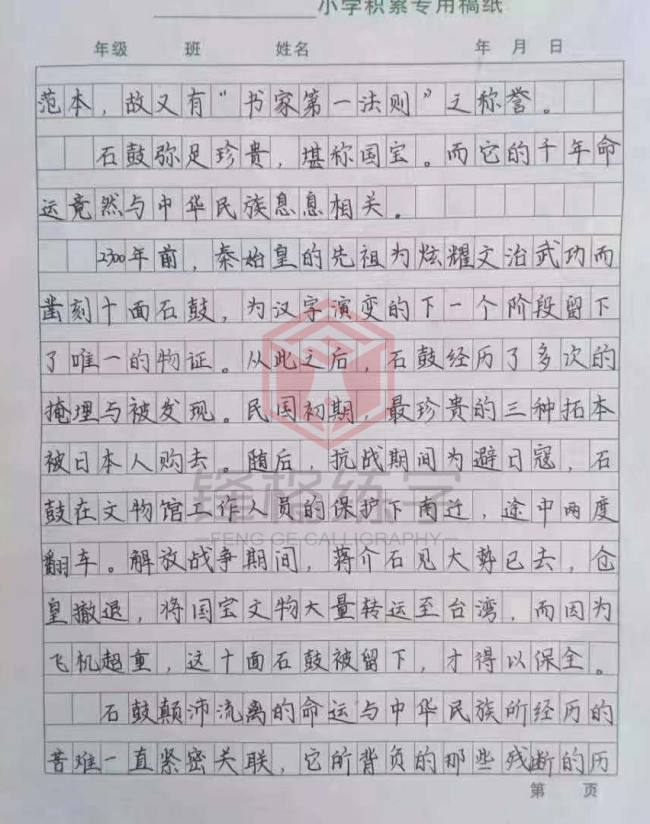 小学积累专用稿纸
年级 班 姓名 年 月 日
范本，故又有“书家第一法则”之称誉。
石鼓弥足珍贵，堪称国宝。而它的千年命
运竟然与中华民族息息相关。
2300年前，秦始皇的先祖为炫耀文治武功而
凿刻十面石鼓，为汉字演变的下一个阶段留下
了唯一的物证。从此之后，石鼓经历了多次的
掩埋与被发现。民国初期，最珍贵的三种拓本
被日本人购去。随后，抗战期间为避日寇，石
鼓在文物馆工作人员的保护下南迁，途中两度
锋格练字
FENG GE CALLIGRAPHY
翻车。解放战争期间，蒋介石见大势已去，仓
皇撤退，将国宝文物大量转运至台湾，而因为
飞机超重，这十面石鼓被留下，才得以保全。
石鼓颠沛流离的命运与中华民族所经历的
苦难一直紧密关联，它所背负的那些残断的历
第 页